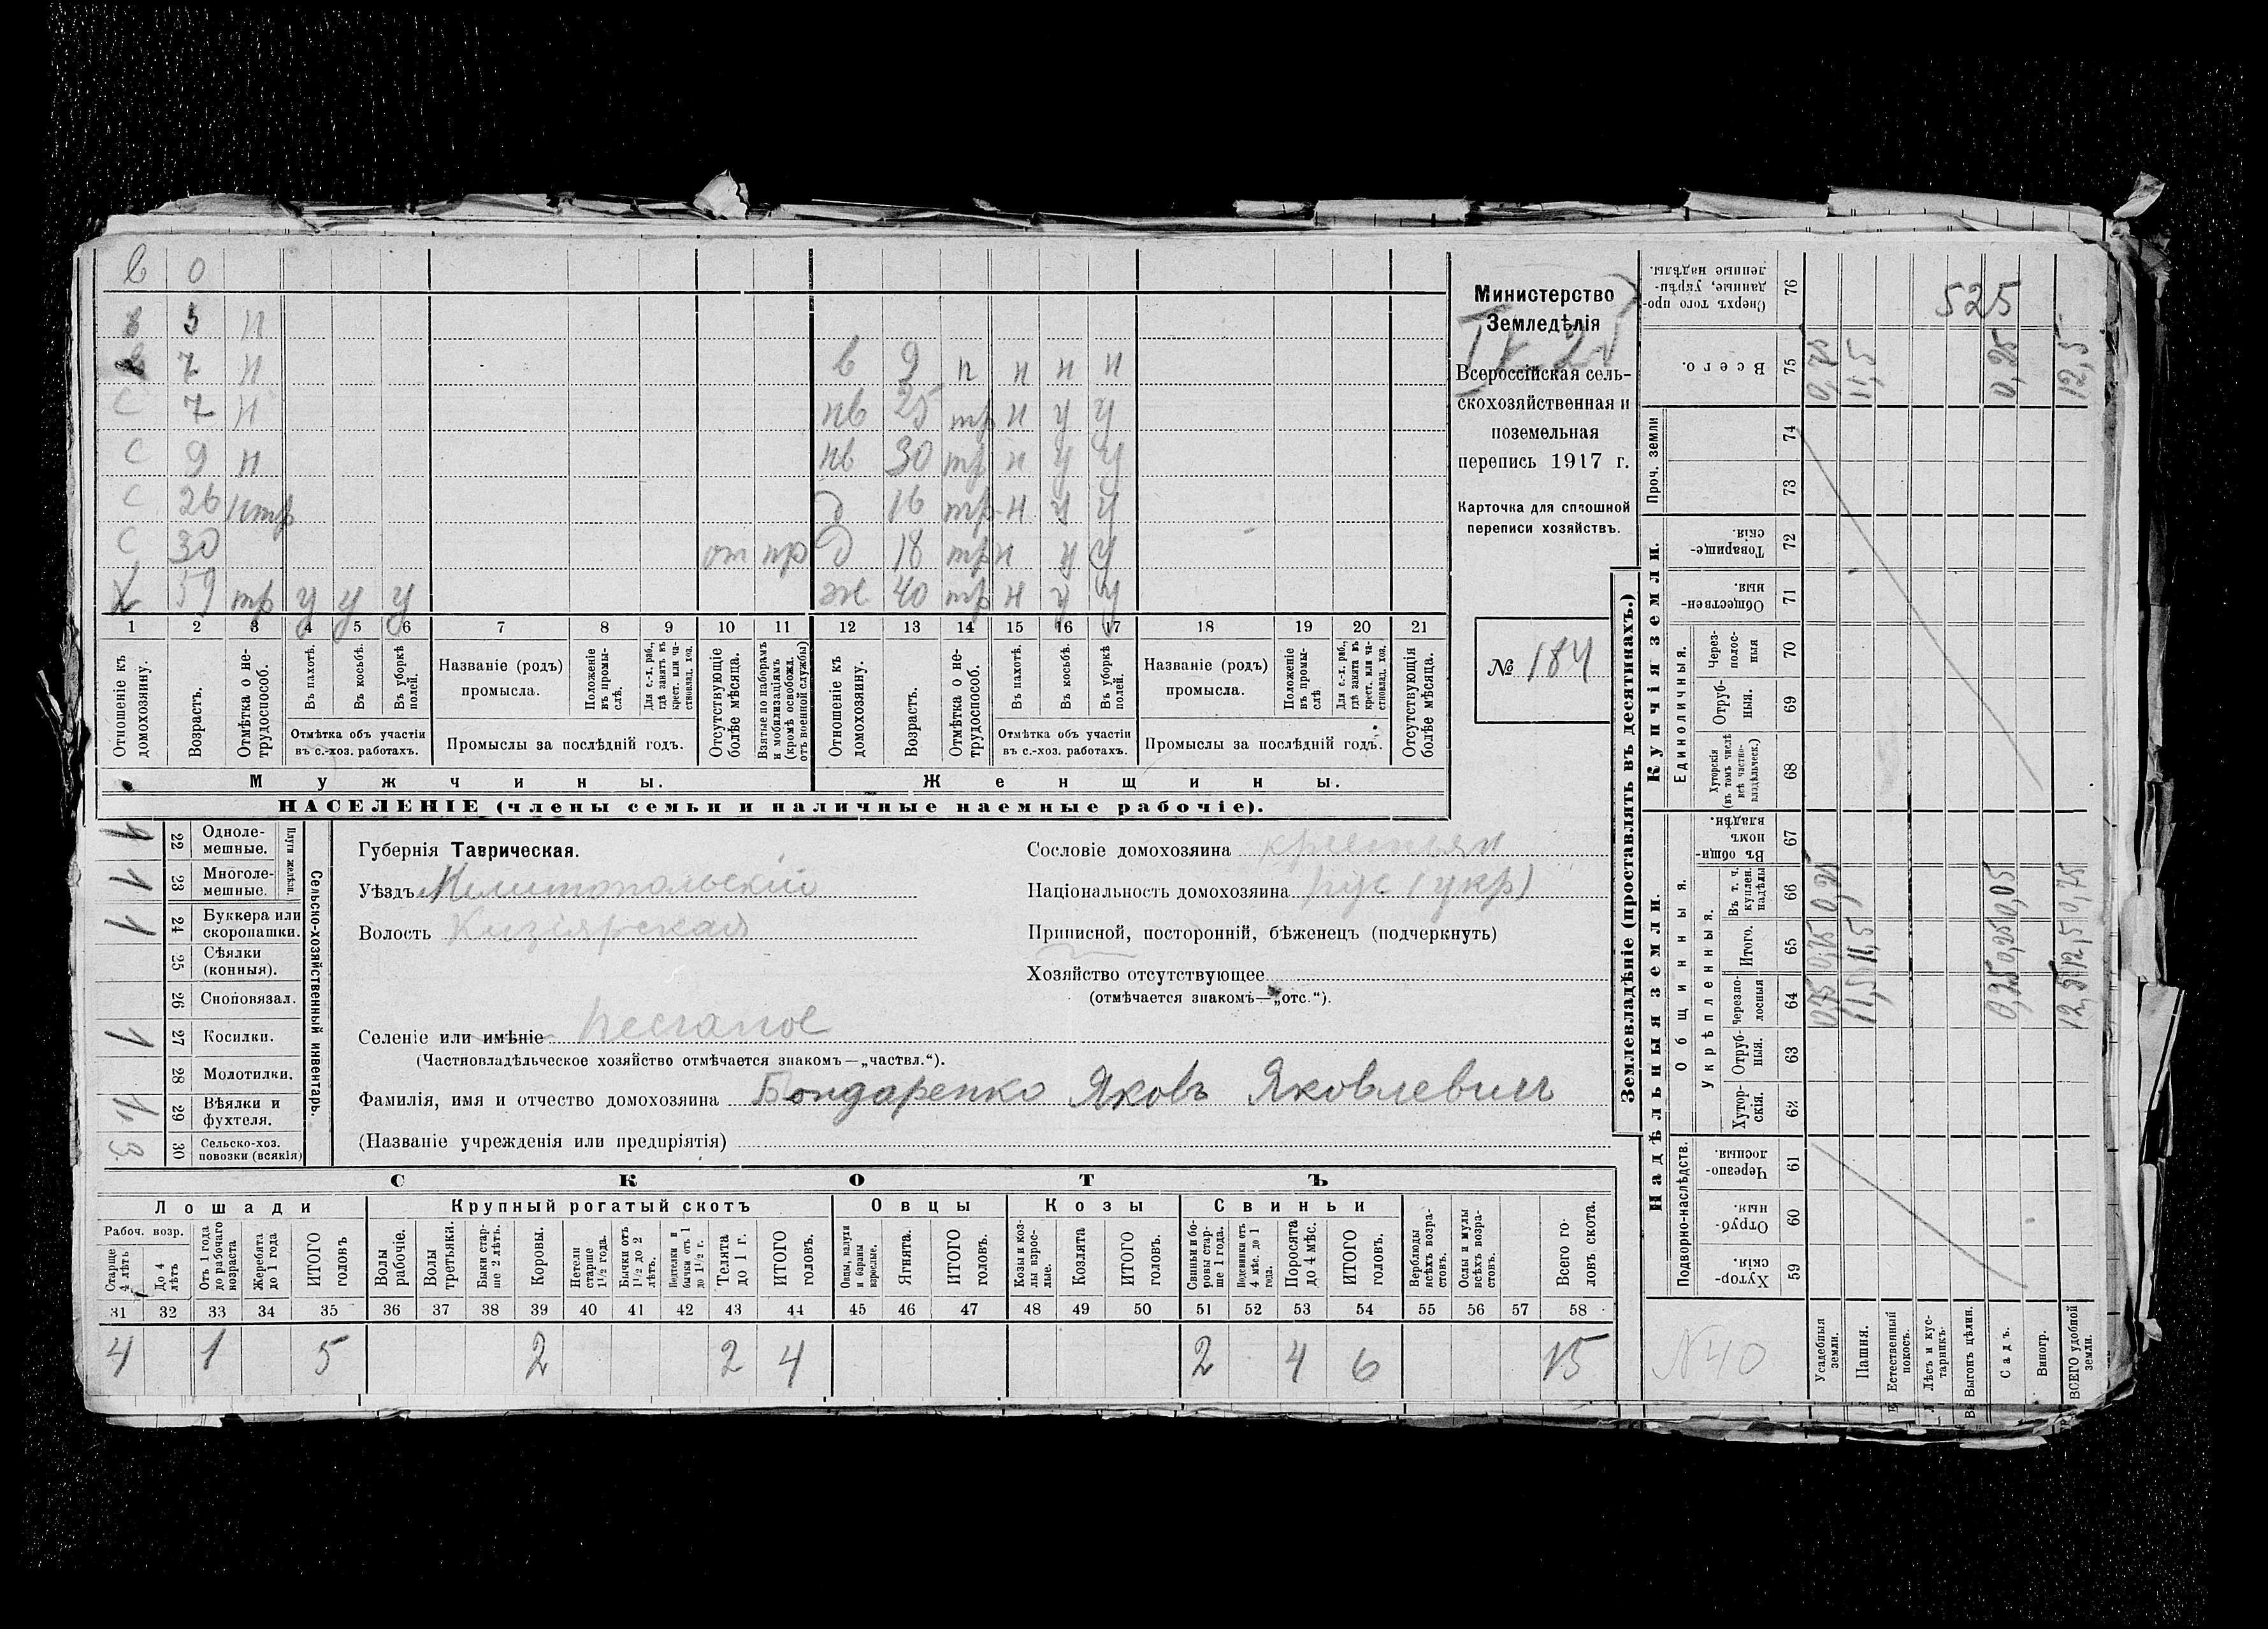 в 0
в 5 н
в 7 н в 9 п н н н
с 7 н нв 25 тр н у у
с 9 н нв 30 тр н у у
с 26 нтр д 16 тр н у у
с 30 от пр д 18 тр н у у
х 59 тр у у у ж 40 тр н у у
1 2 3 4 5 6 7 8 9 10 11 12 13 14 15 16 17 18 19 20 21
Отношеніе къ домохозяину.
Возрастъ.
Отмѣтка о нетрудоспособ.
Въ пахотѣ.
Въ косьбѣ.
Въ уборкѣ полей.
Отмѣтка объ участіи въ с.-хоз. работахъ.
Названіе (родъ) промысла.
Положеніе въ промыслѣ.
Для с.-х. раб., гдѣ занятъ въ крест. или частновлад. хоз.
Промыслы за послѣдній годъ.
Отсутствующіе болѣе мѣсяца.
Взятые по наборамъ и мобилизаціямъ (кромѣ освобожд. отъ военной службы)
Отношеніе къ домохозяину.
Возрастъ.
Отмѣтка о нетрудоспособ.
Въ пахотѣ.
Въ косьбѣ.
Въ уборкѣ полей.
Отмѣтка объ участіи въ с.-хоз. работахъ.
Названіе (родъ) промысла.
Положеніе въ промыслѣ
Для с.-х. раб., гдѣ занята въ крест. или частновлад. хоз.
Промыслы за послѣдній годъ.
Отсутствующія болѣе мѣсяца.
Мужчины. Женщины.
НАСЕЛЕНІЕ (члены семьи и наличные наемные рабочіе).
Министерство
Земледѣлія
Всероссійская сель-
скохозяйственная и
поземельная
перепись 1917 г.
Карточка для сплошной
переписи хозяйствъ.
№ 184
Сельско-хозяйственный инвентарь.
Плуги желѣзн.
1 22 Однолемешные.
1 23 Многолемешные.
1 24 Буккера или скоропашки.
25 Сѣялки (конныя).
26 Сноповязал.
1 27 Косилки.
28 Молотилки.
1 29 Вѣялки и фухтеля.
3 30 Сельско-хоз. повозки (всякія)
Губернія Таврическая.
Уѣздъ Мелитопольскій
Волость Кизіярская
Сословіе домохозяина крестьян
Національность домохозяина рус (укр)
Приписной, посторонній, бѣженецъ (подчеркнуть)
Хозяйство отсутствующее
(отмѣчается знакомъ—„отс.“).
Селеніе или имѣніе Песчаное
(Частновладѣльческое хозяйство отмѣчается знакомъ—„частвл.“).
Фамилія, имя и отчество домохозяина Бондаренко Яковъ Яковлевич
(Названіе учрежденія или предпріятія)
СКОТЪ
Лошади Крупный рогатый скотъ Овцы Козы Свиньи
Рабоч. возр.
Старше 4 лѣтъ
До 4 лѣтъ
Отъ 1 года до рабочаго возраста
Жеребята до 1 года
ИТОГО головъ
Волы рабочіе.
Волы третьяки.
Быки старше 2 лѣтъ.
Коровы.
Нетели старше 1½ года.
Бычки отъ 1½ до 2 лѣтъ.
Подтелки и бычки отъ 1 до 1½ г.
Телята до 1 г.
ИТОГО головъ.
Овцы, валухи и бараны взрослые.
Ягнята.
ИТОГО головъ.
Козы и козлы взрослые.
Козлята
ИТОГО головъ.
Свиньи и боровы старше 1 года.
Подсвинки отъ 4 мѣс. до 1 года.
Поросята до 4 мѣс.
ИТОГО головъ.
Верблюды всѣхъ возрастовъ.
Ослы и мулы всѣхъ возрастовъ.
Всего головъ скота.
31 32 33 34 35 36 37 38 39 40 41 42 43 44 45 46 47 48 49 50 51 52 53 54 55 56 57 58
4 1 5 2 2 4 2 4 6 15
Землевладѣніе (проставлять въ десятинахъ.)
Надѣльныя земли. Купчія земли. Проч. земли
Подворно-наслѣдств. Общинныя. Укрѣпленныя. Единоличныя.
Хуторскія. 59
Отрубныя. 60
Черезполосныя. 61
Хуторскія. 62
Отрубныя. 63
Черезполосныя 64
Итого. 65
Въ т. ч. куплен. надѣлы 66
Въ общинномъ владѣн. 67
Хуторскія (въ томъ числѣ всѣ частновладѣльческ.) 68
Отрубныя. 69
Черезполосныя 70
Общественныя. 71
Товарищескія 72
73
74
Всего. 75
Сверхъ того проданные, укрѣпленные надѣлы. 76
525
№ 40
Усадебныя земли. 0,75 0,75 0,25 0,75
Пашня. 11,5 11,5 11,5
Естественный покосъ.
Лѣсъ и кустарникъ.
Выгонъ цѣлин.
Садъ. 0,25 0,25 0,05 0,25
Виногр.
ВСЕГО удобной земли. 12,5 12,5 0,75 12,5